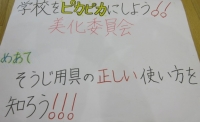 学校をピカピカにしよう!!
美化委員会
めあて
そうじ用具の正しい使い方を
知ろう!!!